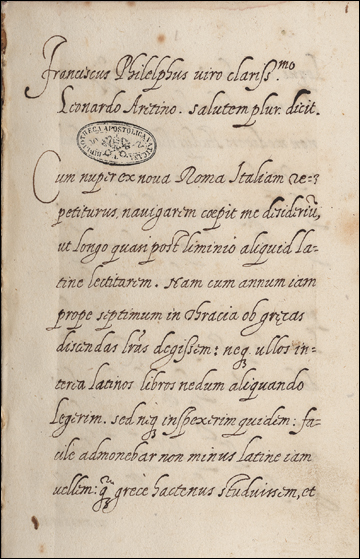 Franciscus Philelphus viro clariss.mo
Leonardo Aretino. salutem plur. dicit.
BIBLIOTHECA APOSTOLICA VATICANA
Cum nuper ex nova Roma Italiam re=
petiturus navigarem cœpit me desideriũ,
ut longo quasi post liminio aliquid la=
tine lectitarem. Nam cum annum iam
prope septimum in Thracia ob gręcas
discendas lr̃as degissem: neq; ullos in=
terea latinos libros nedum aliquando
legerim. sed neq; inspexerim quidem: fa=
cile admonebar non minus latine iam
vellem: q̃ grece hactenus studuissem, et